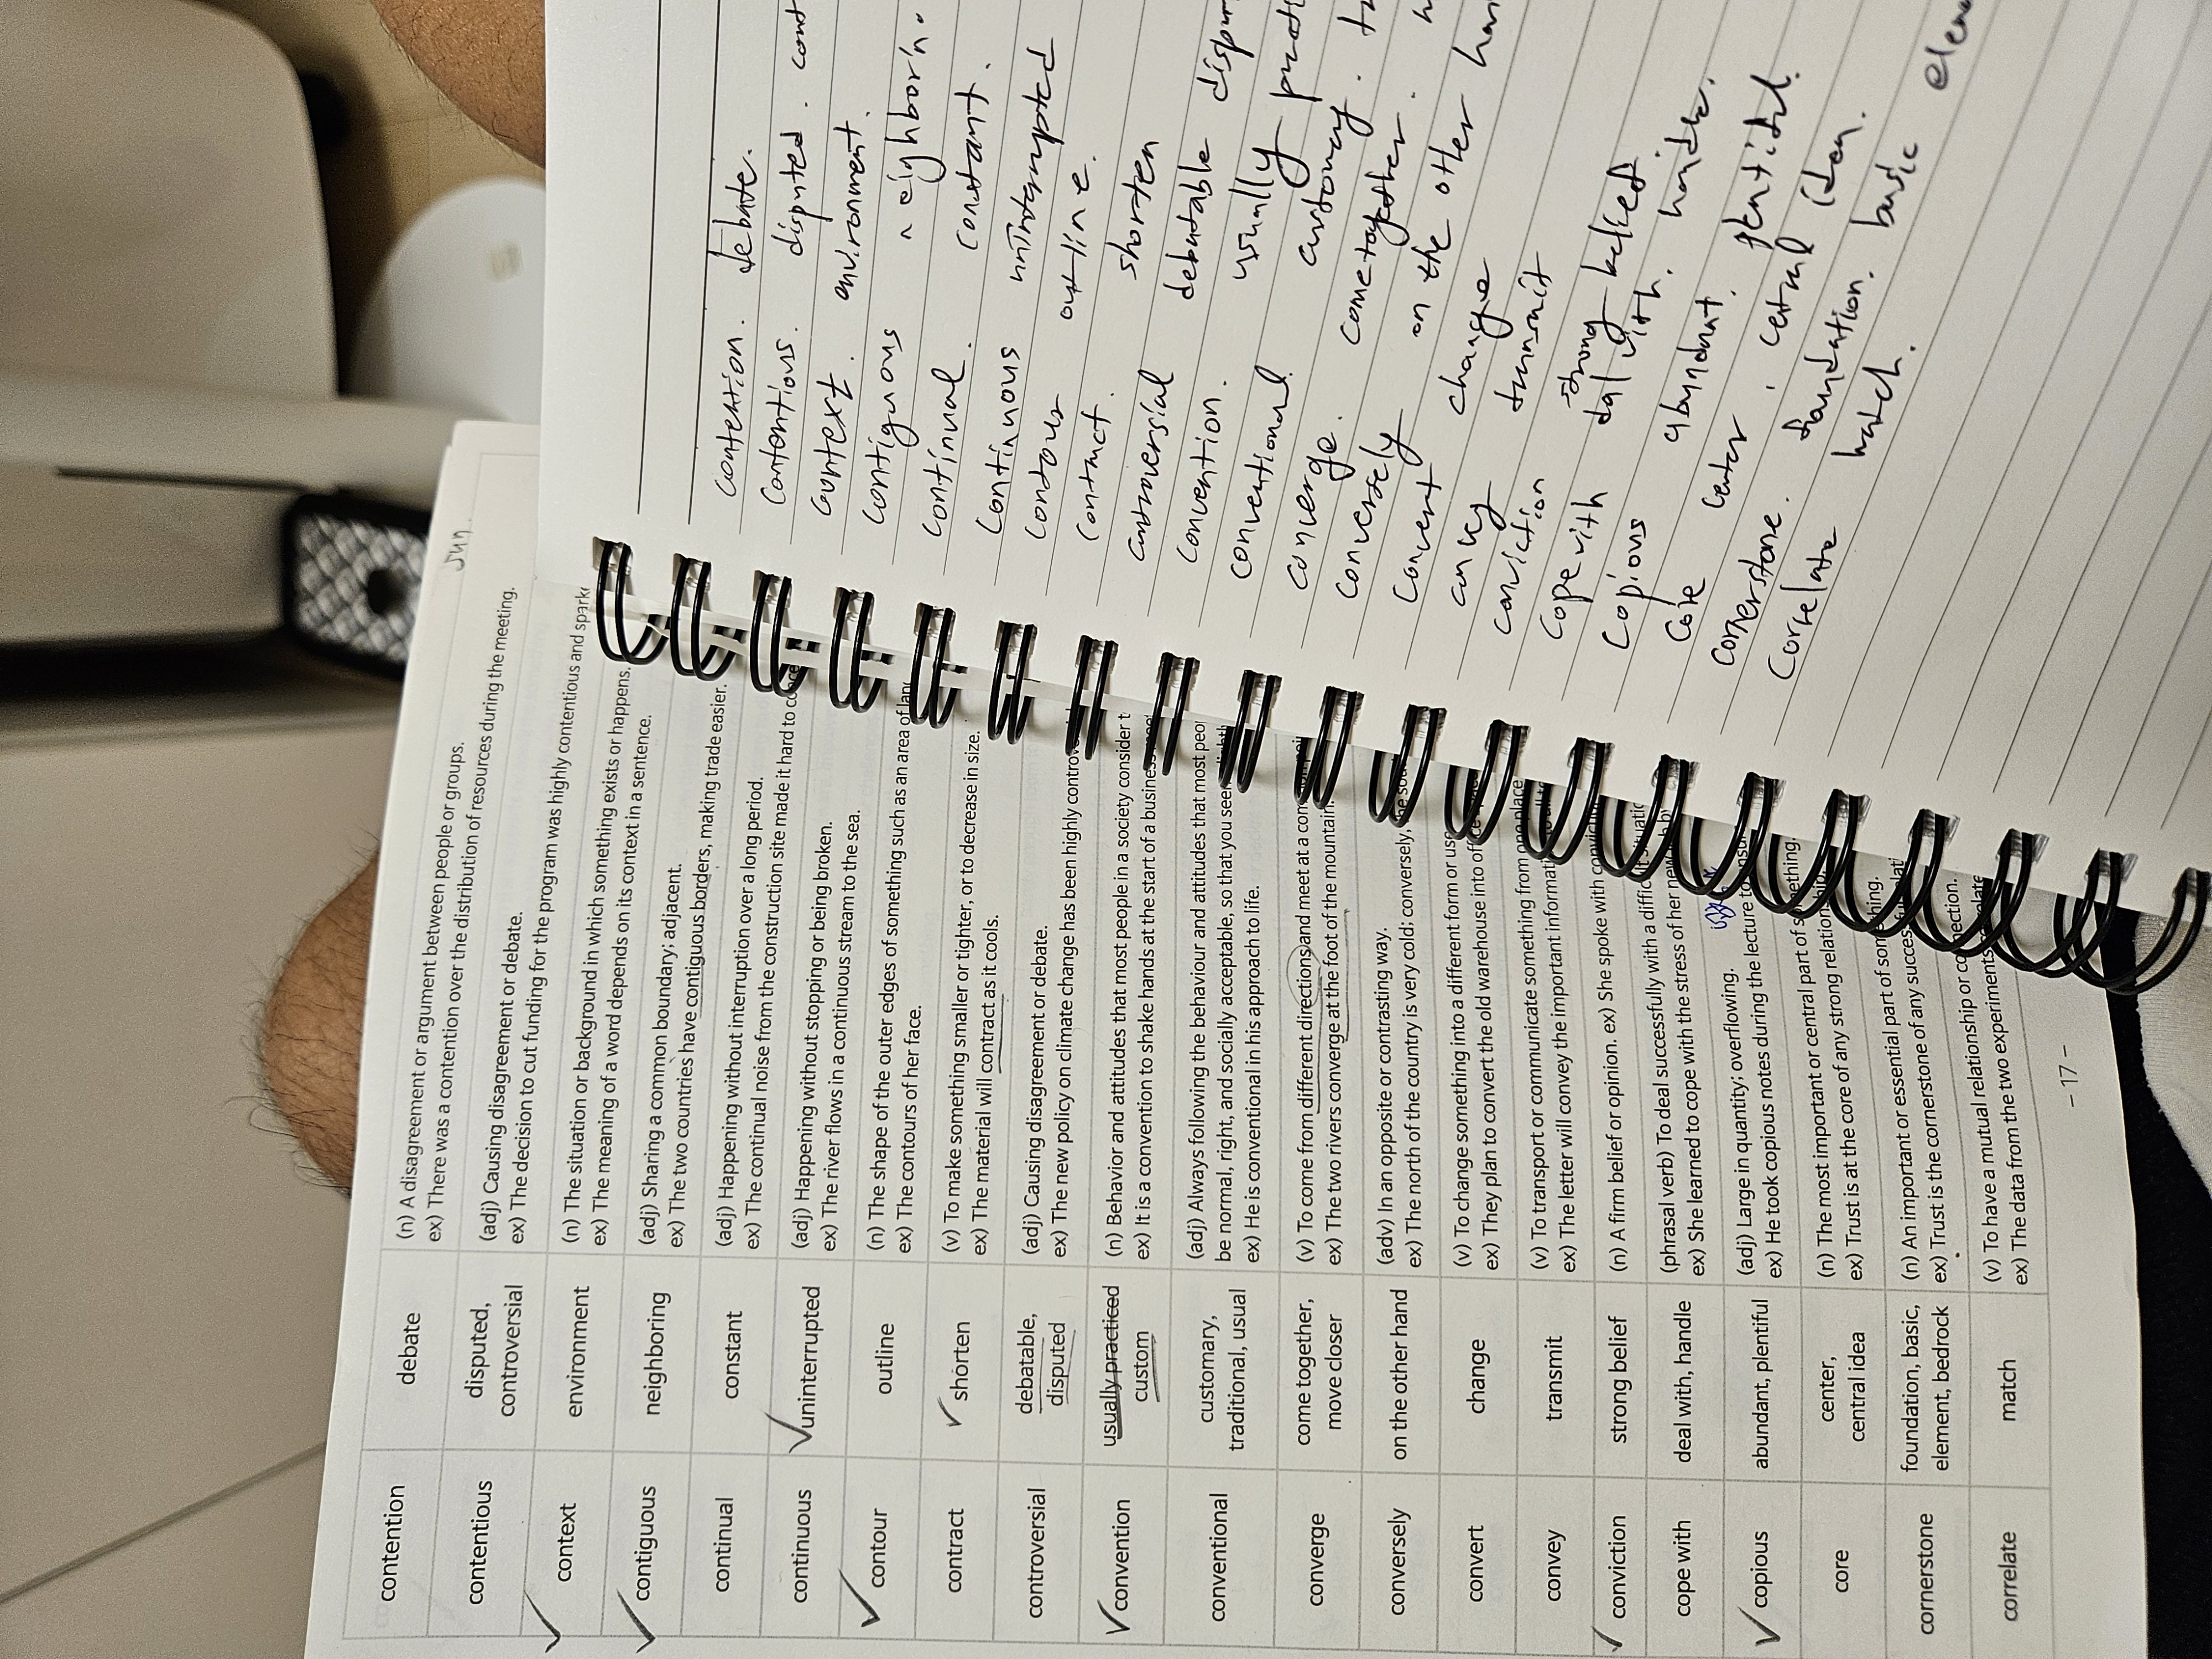 Jun.
contention
debate
(n) A disagreement or argument between people or groups.
ex) There was a contention over the distribution of resources during the meeting.
contentious
disputed,
controversial
(adj) Causing disagreement or debate.
ex) The decision to cut funding for the program was highly contentious and spark
context
environment
(n) The situation or background in which something exists or happens.
ex) The meaning of a word depends on its context in a sentence.
contiguous
neighboring
(adj) Sharing a common boundary; adjacent.
ex) The two countries have contiguous borders, making trade easier.
continual
constant
(adj) Happening without interruption over a long period.
ex) The continual noise from the construction site made it hard to
continuous
uninterrupted
(adj) Happening without stopping or being broken.
ex) The river flows in a continuous stream to the sea.
contour
outline
(n) The shape of the outer edges of something such as an area of
ex) The contours of her face.
contract
shorten
(v) To make something smaller or tighter, or to decrease in size.
ex) The material will contract as it cools.
controversial
debatable,
disputed
(adj) Causing disagreement or debate.
ex) The new policy on climate change has been highly
convention
usually practiced
custom
(n) Behavior and attitudes that most people in a society consider t
ex) It is a convention to shake hands at the start of a business
conventional
customary,
traditional, usual
(adj) Always following the behaviour and attitudes that most peo
be normal, right, and socially acceptable, so that you seem
ex) He is conventional in his approach to life.
converge
come together,
move closer
(v) To come from different directions and meet at a
ex) The two rivers converge at the foot of the mountain.
conversely
on the other hand
(adv) In an opposite or contrasting way.
ex) The north of the country is very cold; conversely, the
convert
change
(v) To change something into a different form or
ex) They plan to convert the old warehouse into
convey
transmit
(v) To transport or communicate something from one place
ex) The letter will convey the important
conviction
strong belief
(n) A firm belief or opinion. ex) She spoke with
cope with
deal with, handle
(phrasal verb) To deal successfully with a difficult
ex) She learned to cope with the stress of her new
copious
abundant, plentiful
(adj) Large in quantity; overflowing.
ex) He took copious notes during the lecture to
core
center,
central idea
(n) The most important or central part of something.
ex) Trust is at the core of any strong relationship.
cornerstone
foundation, basic,
element, bedrock
(n) An important or essential part of something.
ex) Trust is the cornerstone of any
correlate
match
(v) To have a mutual relationship or connection.
ex) The data from the two experiments
– 17 –
contention. debate.
contentious. disputed. cont
context. environment.
contiguous neighborin.
continual. constant.
continuous uninterrupted
contour outline.
contract. shorten
controversial debatable dispu
convention. usually practi
conventional. customary. t
converge. come together.
conversely on the other han
convert change
convey transmit
conviction strong belief
cope with dal with. handle.
copious abundant. plentiful.
core center. central idea.
cornerstone. foundation. basic eleme
correlate match.